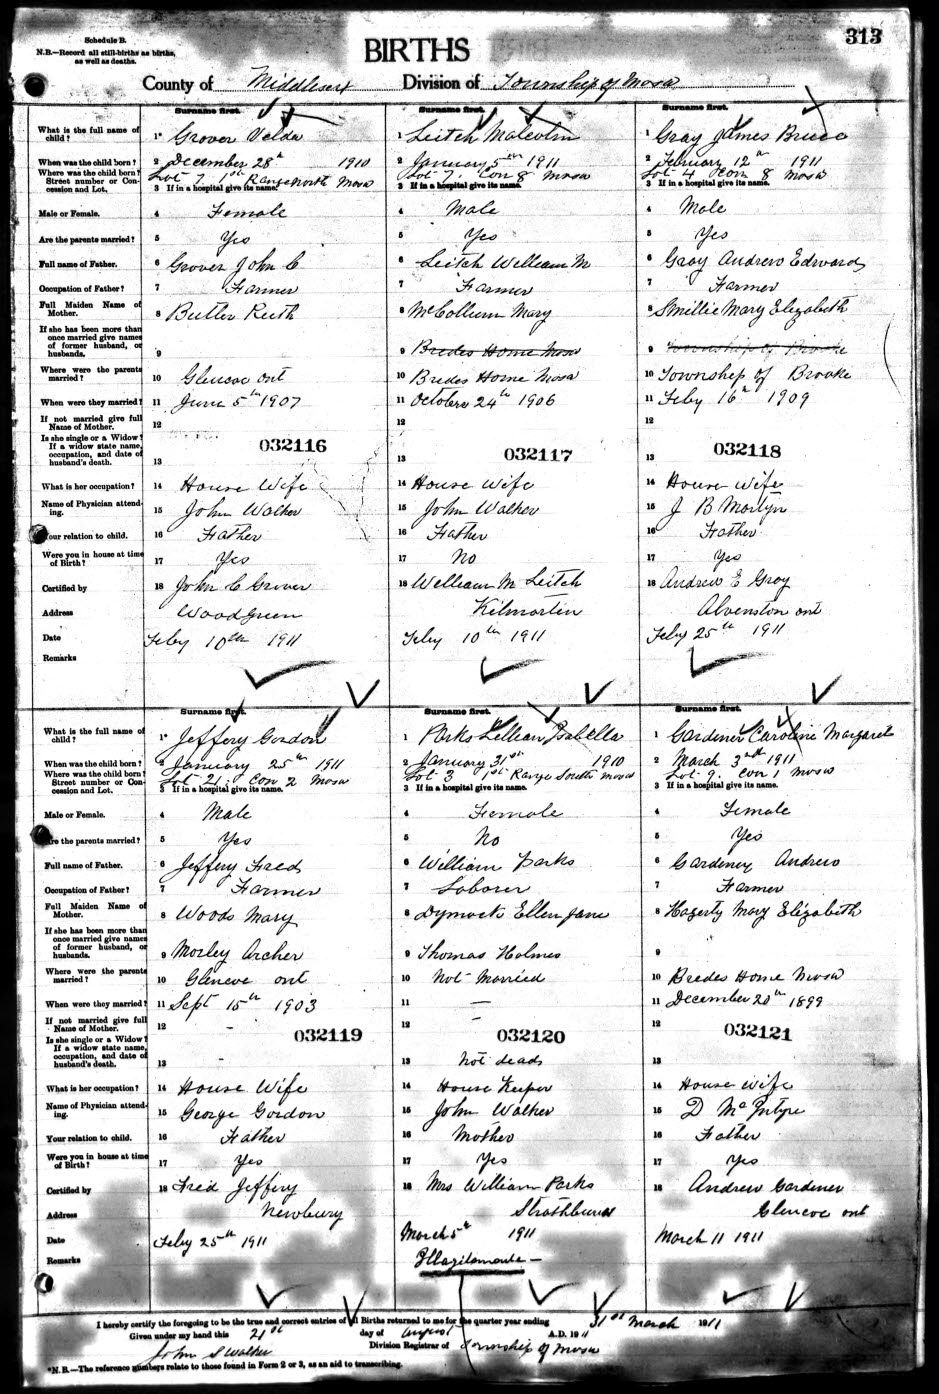 Schedule B.
N.B.—Record all still-births as births, as well as deaths.
BIRTHS
313
County of Middlesex Division of Township of Mosa
Surname first. Surname first. Surname first.
What is the full name of child? 1* Grover Velda 1 Leitch Malcolm 1 Gray James Bruce
When was the child born? 2 December 28th 1910 2 January 5th 1911 2 February 12th 1911
Where was the child born? Street number or Concession and Lot. Lot 7. 1st Range North Mosa Lot 7. Con 8 Mosa Lot 4 Con 8 Mosa
3 If in a hospital give its name. 3 If in a hospital give its name. 3 If in a hospital give its name.
Male or Female. 4 Female 4 Male 4 Male
Are the parents married? 5 Yes 5 Yes 5 Yes
Full name of Father. 6 Grover John C 6 Leitch William M 6 Gray Andrew Edward
Occupation of Father? 7 Farmer 7 Farmer 7 Farmer
Full Maiden Name of Mother. 8 Butler Ruth 8 McCollum Mary 8 Smillie Mary Elizabeth
If she has been more than once married give names of former husband, or husbands. 9 9 Brodes Home Mosa 9 Township of Brooke
Where were the parents married? 10 Glencoe ont 10 Brides Home Mosa 10 Township of Brooke
When were they married? 11 June 5th 1907 11 October 24th 1906 11 Feby 16th 1909
If not married give full Name of Mother. 12 12 12
Is she single or a Widow? If a widow state name, occupation, and date of husband's death. 13 032116 13 032117 13 032118
What is her occupation? 14 House Wife 14 House Wife 14 House wife
Name of Physician attending. 15 John Walker 15 John Walker 15 J B Martyn
Your relation to child. 16 Father 16 Father 16 Father
Were you in house at time of Birth? 17 Yes 17 No 17 Yes
Certified by 18 John C Grover 18 William M Leitch 18 Andrew E Gray
Address Woodgreen Kilmartin Alvinston ont
Date Feby 10th 1911 Feby 10th 1911 Feby 25th 1911
Remarks
Surname first. Surname first. Surname first.
What is the full name of child? 1* Jeffery Gordon 1 Parks Lillian Isabella 1 Gardener Caroline Margaret
When was the child born? 2 January 25th 1911 2 January 31st 1910 2 March 3rd 1911
Where was the child born? Street number or Concession and Lot. Lot 21. Con 2 Mosa Lot 3 1st Range South Mosa Lot 9. Con 1 Mosa
3 If in a hospital give its name. 3 If in a hospital give its name. 3 If in a hospital give its name.
Male or Female. 4 Male 4 Female 4 Female
Are the parents married? 5 Yes 5 No 5 Yes
Full name of Father. 6 Jeffery Fred 6 William Parks 6 Gardener Andrew
Occupation of Father? 7 Farmer 7 Laborer 7 Farmer
Full Maiden Name of Mother. 8 Woods Mary 8 Dymock Ellen Jane 8 Hagerty Mary Elizabeth
If she has been more than once married give names of former husband, or husbands. 9 Morley Archer 9 Thomas Holmes 9
Where were the parents married? 10 Glencoe ont 10 Not Married 10 Brides Home Mosa
When were they married? 11 Sept 15th 1903 11 — 11 December 20th 1899
If not married give full Name of Mother. 12 - 12 — 12
Is she single or a Widow? If a widow state name, occupation, and date of husband's death. 13 - 032119 13 032120 Not dead 13 032121
What is her occupation? 14 House Wife 14 House Keeper 14 House wife
Name of Physician attending. 15 George Gordon 15 John Walker 15 D McIntyre
Your relation to child. 16 Father 16 Mother 16 Father
Were you in house at time of Birth? 17 Yes 17 Yes 17 Yes
Certified by 18 Fred Jeffery 18 Mrs William Parks 18 Andrew Gardener
Address Newbury Strathburn Glencoe ont
Date Feby 25th 1911 March 5th 1911 March 11 1911
Remarks Illegitamate —
I hereby certify the foregoing to be the true and correct entries of all Births returned to me for the quarter year ending 31st March 1911
Given under my hand this 21st day of August A.D. 1911
John S Walker Division Registrar of Township of Mosa
*N.B.—The reference numbers relate to those found in Form 2 or 3, as an aid to transcribing.